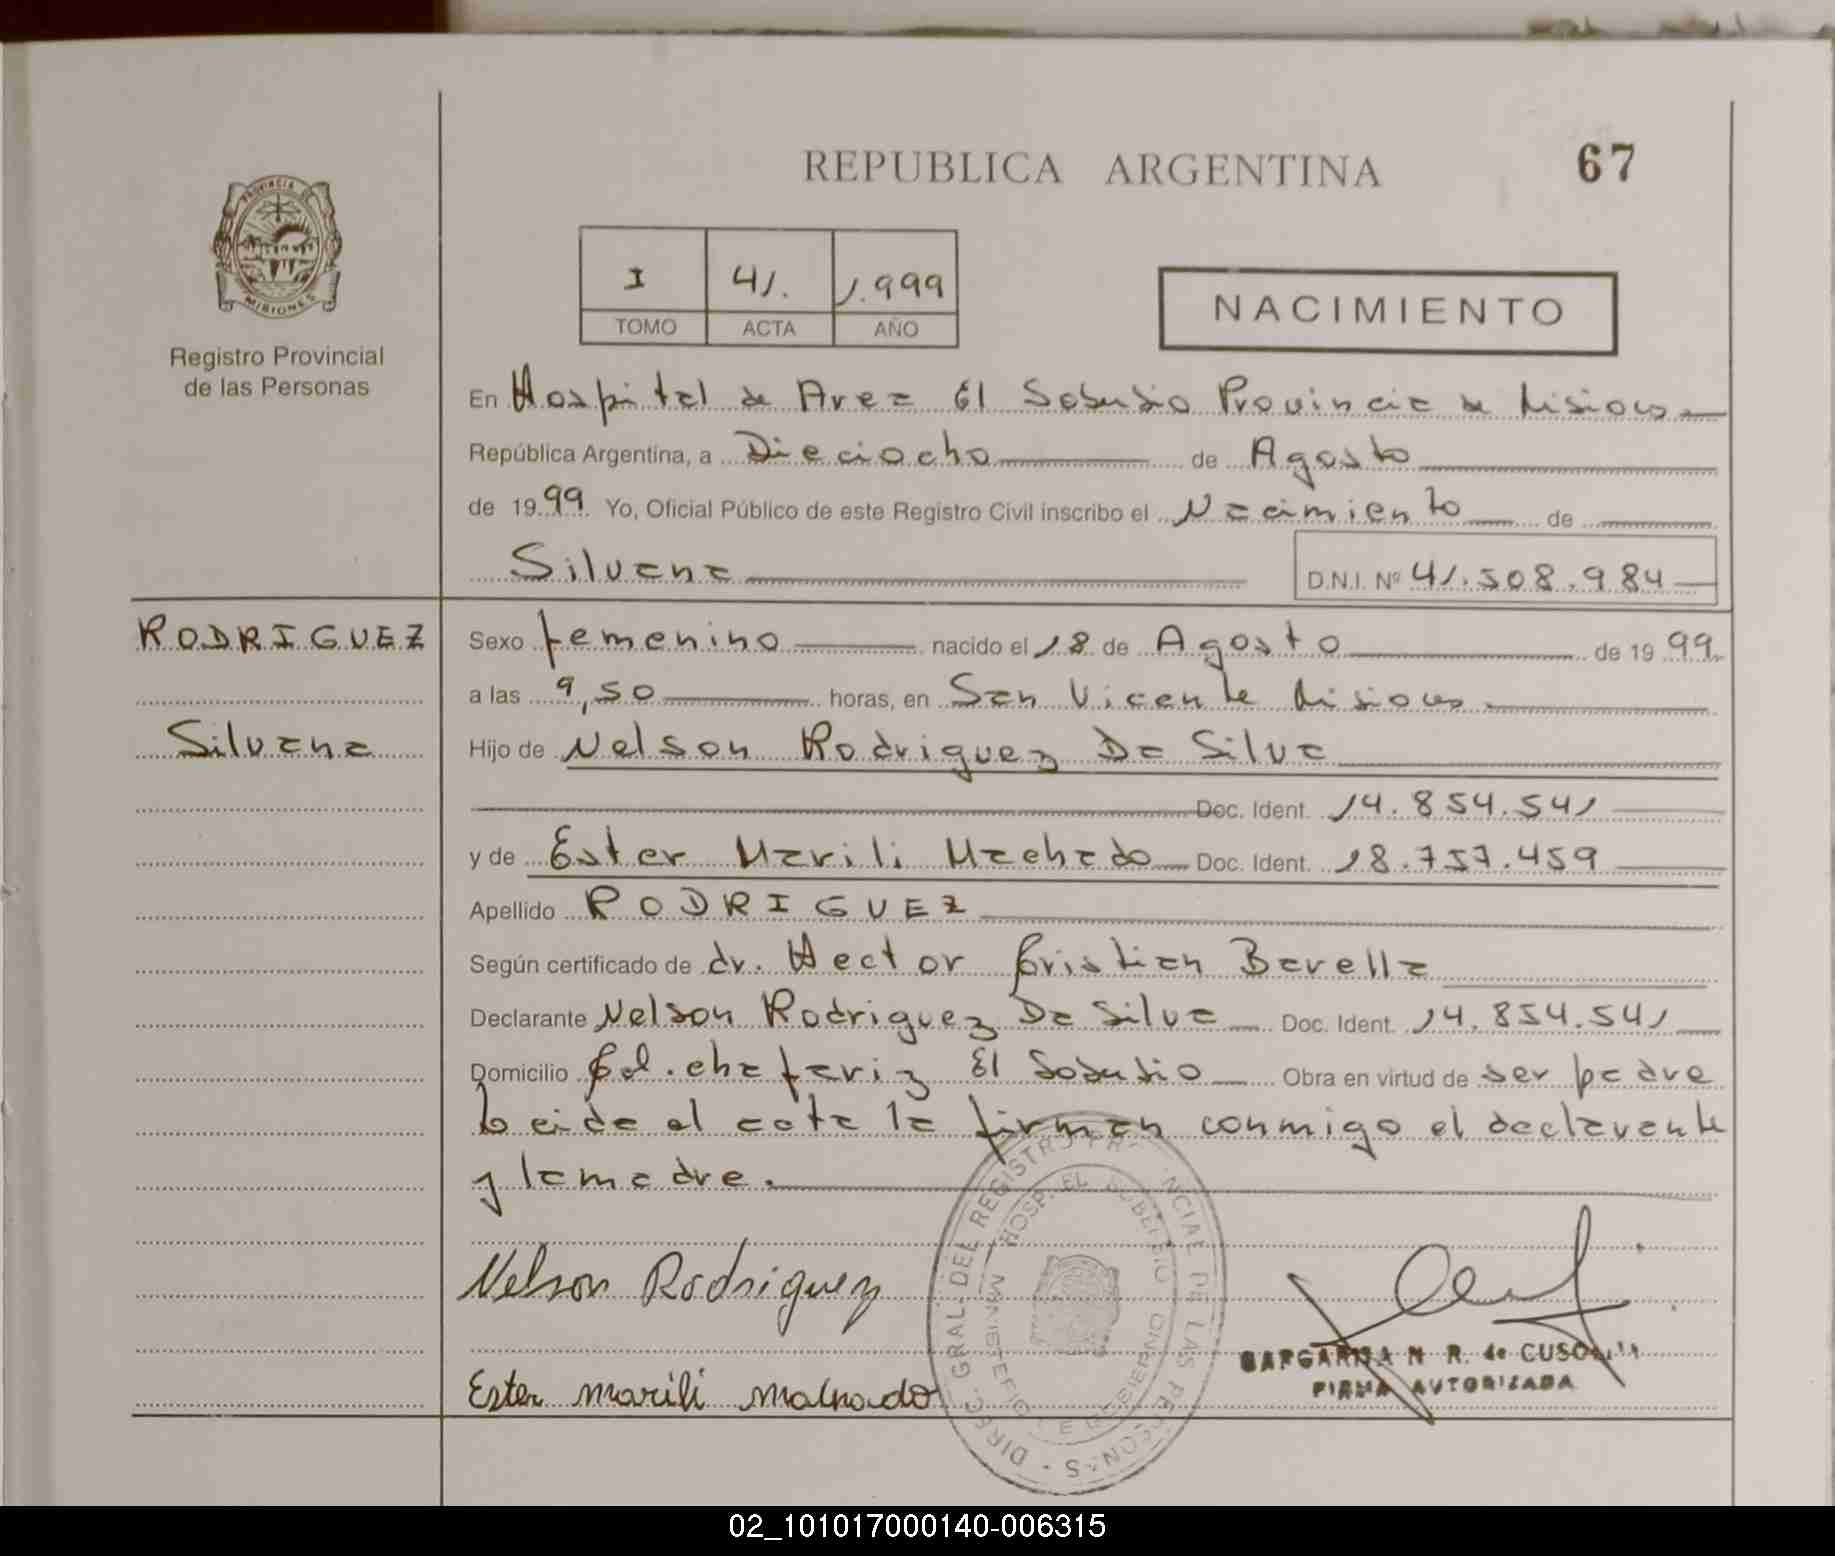 REPUBLICA ARGENTINA
67
PROVINCIA DE
MISIONES
Registro Provincial
de las Personas
I 41. 1.999
TOMO ACTA AÑO
NACIMIENTO
En Hospital de Area El Soberbio Provincia de Misiones
República Argentina, a Dieciocho de Agosto
de 1999 Yo, Oficial Público de este Registro Civil inscribo el Nacimiento de
Silvana D.N.I. Nº 41.508.984
RODRIGUEZ
Silvana
Sexo femenino nacido el 18 de Agosto de 1999.
a las 9,50 horas, en San Vicente Misiones
Hijo de Nelson Rodriguez Da Silva
Doc. Ident. 14.854.541
y de Ester Marili Machado Doc. Ident. 18.757.459
Apellido RODRIGUEZ
Según certificado de dr. Hector Cristian Barella
Declarante Nelson Rodriguez Da Silva Doc. Ident. 14.854.541
Domicilio Col. chafariz El Soberbio Obra en virtud de ser padre
Leida el acta la firman conmigo el declarante
y la madre.
Nelson Rodriguez
Ester marili machado
DIREC. GRAL. DEL REGISTRO PROVINCIAL DE LAS PERSONAS
HOSP. EL SOBERBIO
MINISTERIO DE GOBIERNO
N R. de
FIRMA AUTORIZADA
02_101017000140-006315